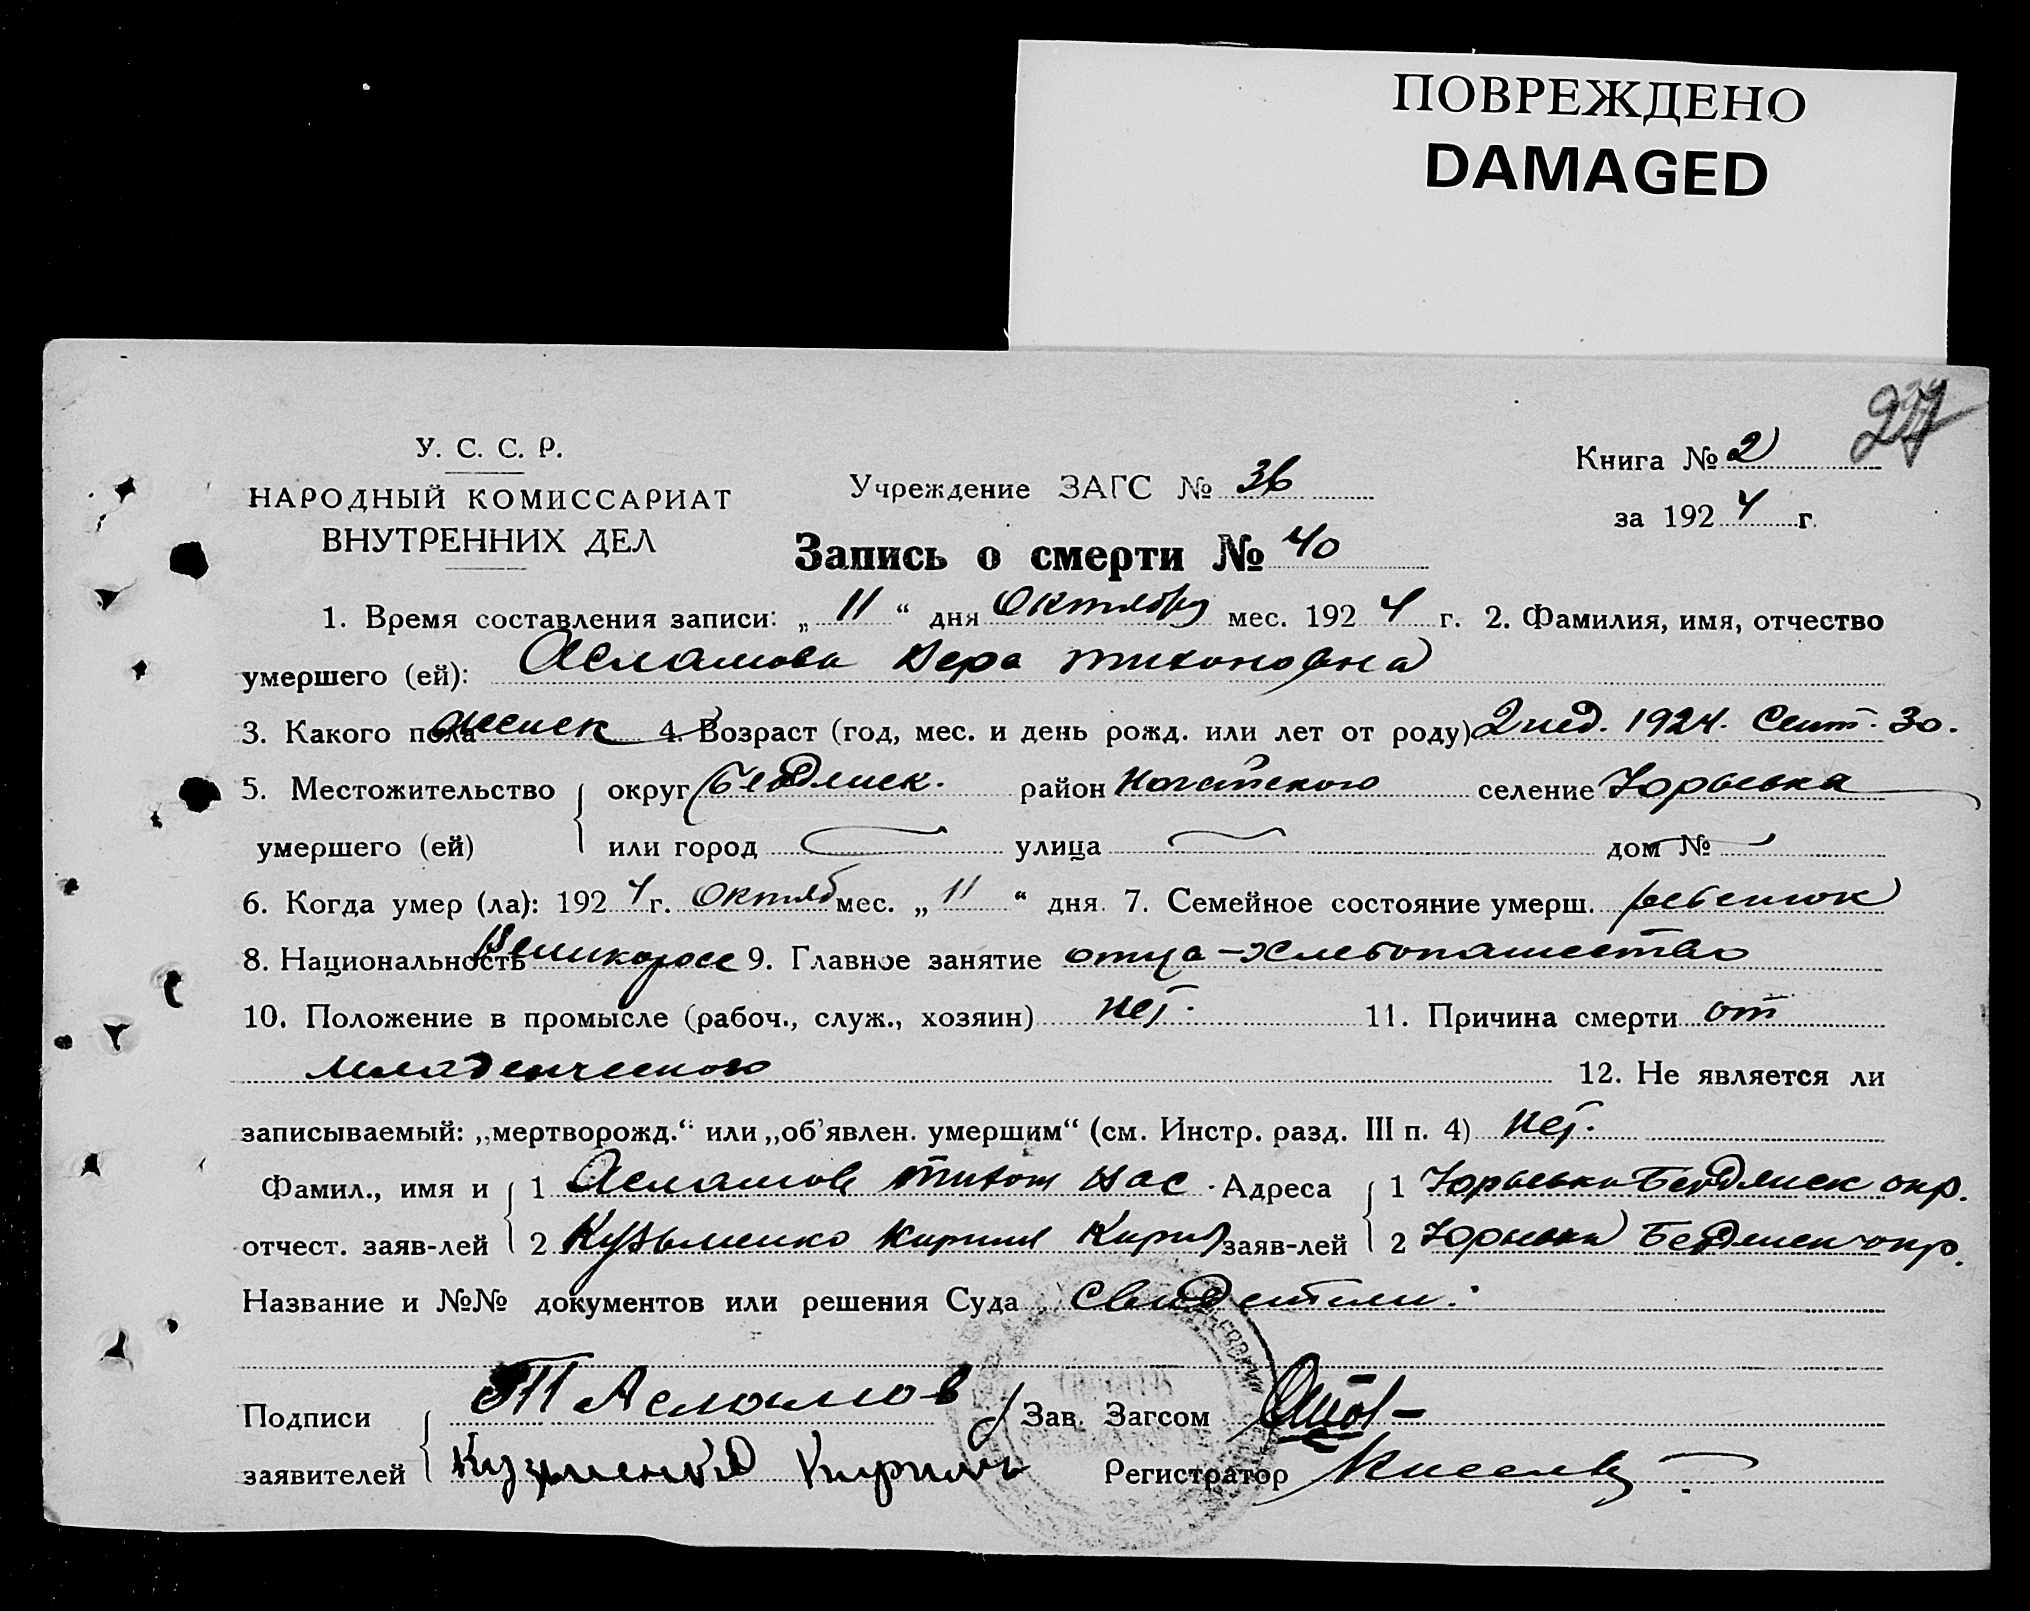 ПОВРЕЖДЕНО
DAMAGED
227
У. С. С. Р.
НАРОДНЫЙ КОМИССАРИАТ
ВНУТРЕННИХ ДЕЛ
Учреждение ЗАГС № 36
Книга № 2
за 1924 г.
Запись о смерти № 40
1. Время составления записи: „11“ дня Октября мес. 1924 г. 2. Фамилия, имя, отчество
умершего (ей): Асламова Вера Тихоновна
3. Какого пола женск 4. Возраст (год, мес. и день рожд. или лет от роду) 2 нед. 1924. Сент. 30.
5. Местожительство округ Бердянск. район Ногайского селение Юрьевка
умершего (ей) или город улица дом №
6. Когда умер (ла): 1924 г. Октяб мес. „11“ дня. 7. Семейное состояние умерш. ребенок
8. Национальность Великоросс 9. Главное занятие отца - хлебопашество
10. Положение в промысле (рабоч., служ., хозяин) нет. 11. Причина смерти от
младенческого 12. Не является ли
записываемый: „мертворожд.“ или „об'явлен. умершим“ (см. Инстр. разд. III п. 4) нет.
Фамил., имя и 1 Асламов Тихон Вас. Адреса 1 Юрьевка Бердянск окр.
отчест. заяв-лей 2 Кузьменко Кирилл Кирил заяв-лей 2 Юрьевка Бердянск окр.
Название и №№ документов или решения Суда Свидетели.
Подписи Т Асламов Зав. Загсом
заявителей Кузменко Кирилл Регистратор